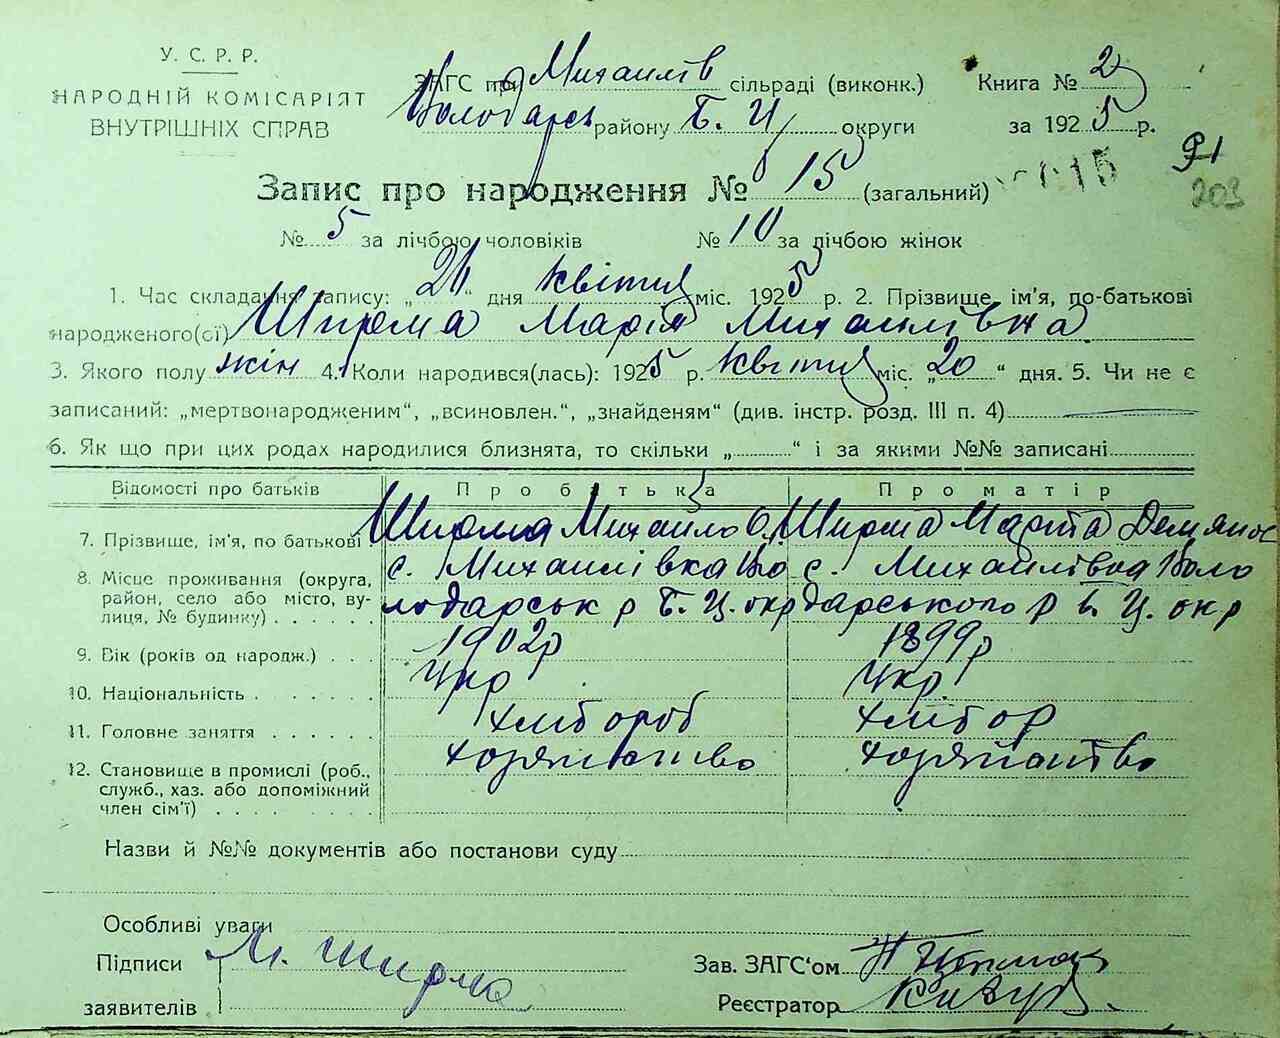 У. С. Р. Р.
НАРОДНІЙ КОМІСАРІЯТ
ВНУТРІШНІХ СПРАВ
ЗАГС при Михайлів сільраді (виконк.) Книга № 2
Володарсь району Б. Ц. округи за 1925 р.
91
203
Запис про народження № 15 (загальний)
№ 5 за лічбою чоловіків № 10 за лічбою жінок
1. Час складання запису: „ " дня квітня міс. 1925 р. 2. Прізвище, ім'я, по-батькові
народженого(сї) Ширма Марія Михайлівна
3. Якого полу жін 4. Коли народився(лась): 1925 р. квітня міс. „20" дня. 5. Чи не є
записаний: „мертвонародженим", „всиновлен.", „знайденям" (див. інстр. розд. III п. 4)
6. Як що при цих родах народилися близнята, то скільки „ " і за якими №№ записані
Відомості про батьків Про батька Про матір
7. Прізвище, ім'я, по батькові Ширма Михайло О. Ширма Марта Демянов
8. Місце проживання (округа, район, село або місто, вулиця, № будинку) с. Михайлівка Володарськ р Б. Ц. окр с. Михайлівка Володарського р Б. Ц. окр
9. Вік (років од народж.) 1902р 1899р
10. Національність Укр Укр.
11. Головне заняття хлібороб хлібор
12. Становище в промислі (роб., служб., хаз. або допоміжний член сім'ї) хозяйство хозяйство
Назви й №№ документів або постанови суду
Особливі уваги
Підписи заявителів М. Ширма
Зав. ЗАГС'ом
Реєстратор